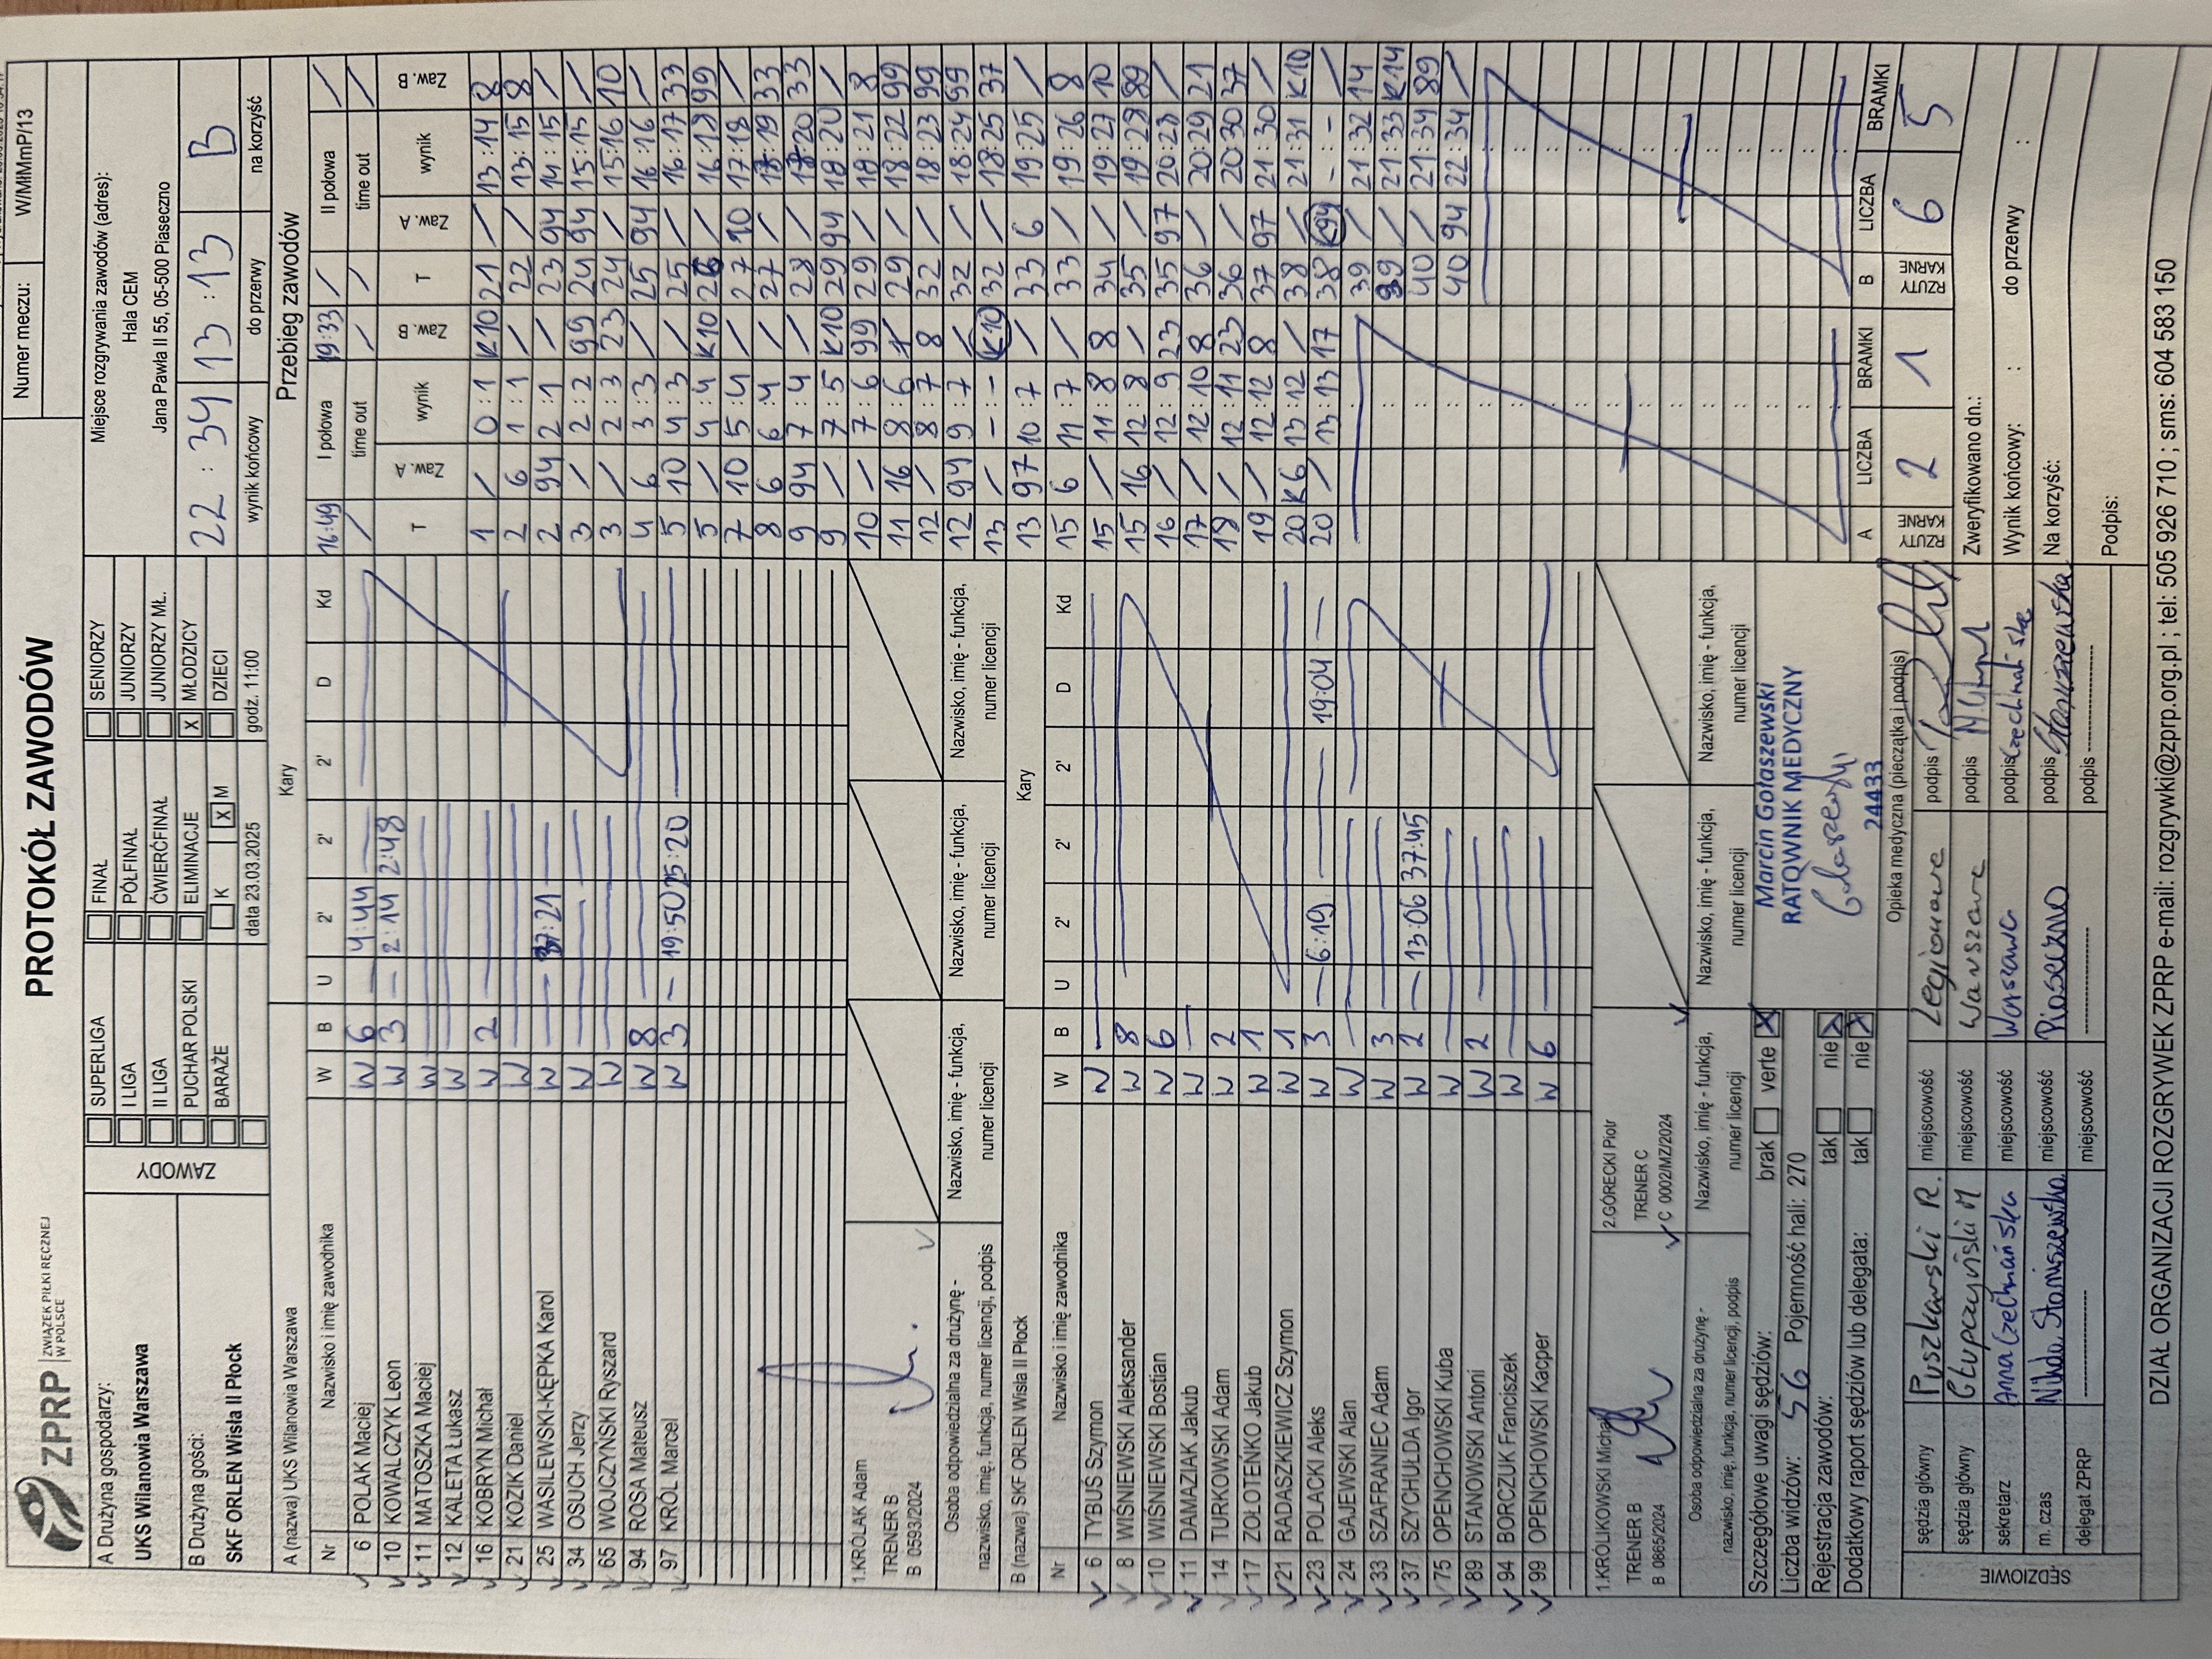 ZPRP ZWIĄZEK PIŁKI RĘCZNEJ W POLSCE
PROTOKÓŁ ZAWODÓW
Numer meczu: W/MłMmP/13
A Drużyna gospodarzy:
UKS Wilanowia Warszawa
B Drużyna gości:
SKF ORLEN Wisła II Płock
ZAWODY
SUPERLIGA
I LIGA
II LIGA
PUCHAR POLSKI
BARAŻE
FINAŁ
PÓŁFINAŁ
ĆWIERĆFINAŁ
ELIMINACJE
K X M
data 23.03.2025
SENIORZY
JUNIORZY
JUNIORZY MŁ.
X MŁODZICY
DZIECI
godz. 11:00
Miejsce rozgrywania zawodów (adres):
Hala CEM
Jana Pawła II 55, 05-500 Piaseczno
22 : 34 13 : 13 B
wynik końcowy do przerwy na korzyść
A (nazwa) UKS Wilanowia Warszawa Kary
Nr Nazwisko i imię zawodnika W B U 2' 2' 2' D Kd
6 POLAK Maciej W 6 — 4:44
10 KOWALCZYK Leon W 3 — 2:14 2:48
11 MATOSZKA Maciej W
12 KALETA Łukasz W
16 KOBRYN Michał W 2
21 KOZIK Daniel W
25 WASILEWSKI-KĘPKA Karol W — 37:21
34 OSUCH Jerzy W
65 WOJCZYŃSKI Ryszard W
94 ROSA Mateusz W 8
97 KRÓL Marcel W 3 — 19:50 25:20
1.KRÓLAK Adam
TRENER B
B 0593/2024
Osoba odpowiedzialna za drużynę - nazwisko, imię, funkcja, numer licencji, podpis
Nazwisko, imię - funkcja, numer licencji
Nazwisko, imię - funkcja, numer licencji
Nazwisko, imię - funkcja, numer licencji
B (nazwa) SKF ORLEN Wisła II Płock Kary
Nr Nazwisko i imię zawodnika W B U 2' 2' 2' D Kd
6 TYBUŚ Szymon W
8 WIŚNIEWSKI Aleksander W 8
10 WIŚNIEWSKI Bostian W 6
11 DAMAZIAK Jakub W
14 TURKOWSKI Adam W 2
17 ZOŁOTEŃKO Jakub W 1
21 RADASZKIEWICZ Szymon W 1
23 POLACKI Aleks W 3 — 6:19 — 19:04 —
24 GAJEWSKI Alan W
33 SZAFRANIEC Adam W 3
37 SZYCHUŁDA Igor W 2 — 13:06 37:45
75 OPENCHOWSKI Kuba W
89 STANOWSKI Antoni W 2
94 BORCZUK Franciszek W
99 OPENCHOWSKI Kacper W 6
1.KRÓLIKOWSKI Michał
TRENER B
B 0865/2024
2.GÓRECKI Piotr
TRENER C
C 0002/MZ/2024
Osoba odpowiedzialna za drużynę - nazwisko, imię, funkcja, numer licencji, podpis
Nazwisko, imię - funkcja, numer licencji
Nazwisko, imię - funkcja, numer licencji
Nazwisko, imię - funkcja, numer licencji
Szczegółowe uwagi sędziów: brak verte X
Liczba widzów: 56 Pojemność hali: 270
Rejestracja zawodów: tak nie X
Dodatkowy raport sędziów lub delegata: tak nie X
Marcin Gołaszewski
RATOWNIK MEDYCZNY
24433
Opieka medyczna (pieczątka i podpis)
SĘDZIOWIE
sędzia główny Puszkarski R. miejscowość Legionowo podpis
sędzia główny Głupczyński M miejscowość Warszawa podpis
sekretarz Anna Czechmańska miejscowość Warszawa podpis
m. czas Nikola Staniszewska miejscowość Piaseczno podpis Staniszewska
delegat ZPRP miejscowość podpis
Przebieg zawodów
16:49 I połowa 19:33 / II połowa /
/ time out / / time out /
T Zaw. A wynik Zaw. B T Zaw. A wynik Zaw. B
1 / 0:1 K10 21 / 13:14 8
2 6 1:1 / 22 / 13:15 8
2 94 2:1 / 23 94 14:15 /
3 / 2:2 99 24 94 15:15 /
3 / 2:3 23 24 / 15:16 10
4 6 3:3 / 25 94 16:16 /
5 10 4:3 / 25 / 16:17 33
5 / 4:4 K10 26 / 16:18 99
7 10 5:4 / 27 10 17:18 /
8 6 6:4 / 27 / 17:19 33
9 94 7:4 / 28 / 17:20 33
9 / 7:5 K10 29 94 18:20 /
10 / 7:6 99 29 / 18:21 8
11 16 8:6 / 29 / 18:22 99
12 / 8:7 8 32 / 18:23 99
12 94 9:7 / 32 / 18:24 99
13 / -:- K10 32 / 18:25 37
13 97 10:7 / 33 6 19:25 /
15 6 11:7 / 33 / 19:26 8
15 / 11:8 8 34 / 19:27 10
15 16 12:8 / 35 / 19:28 89
16 / 12:9 23 35 97 20:28 /
17 / 12:10 8 36 / 20:29 21
18 / 12:11 23 36 / 20:30 37
19 / 12:12 8 37 97 21:30 /
20 K6 13:12 / 38 / 21:31 K10
20 / 13:13 17 38 K94 -:- /
39 / 21:32 14
39 / 21:33 K14
40 / 21:34 89
40 94 22:34 /
A RZUTY KARNE LICZBA 2 BRAMKI 1
B RZUTY KARNE LICZBA 6 BRAMKI 5
Zweryfikowano dn.:
Wynik końcowy: : do przerwy :
Na korzyść:
Podpis:
DZIAŁ ORGANIZACJI ROZGRYWEK ZPRP e-mail: rozgrywki@zprp.org.pl ; tel: 505 926 710 ; sms: 604 583 150